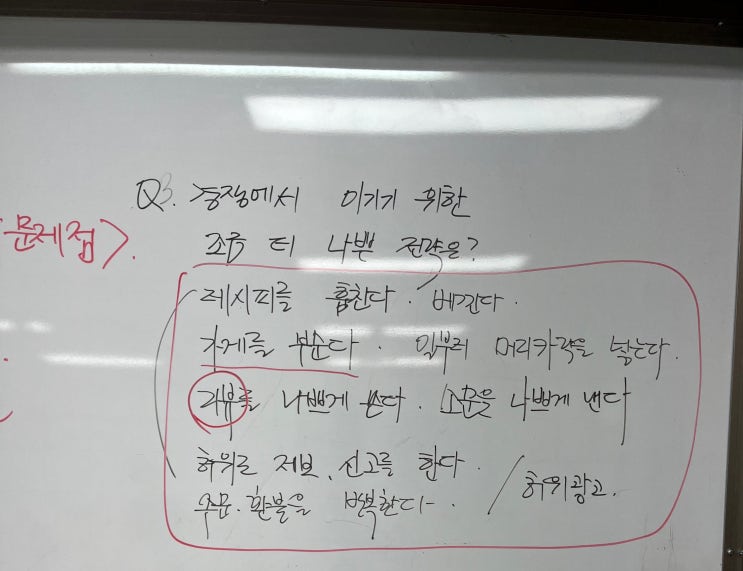 Q3. 경쟁에서 이기기 위한
조금 더 나쁜 전략은?
문제점>.
레시피를 훔친다. 베낀다.
가게를 부순다. 일부러 머리카락을 넣는다.
리뷰를 나쁘게 쓴다. 소문을 나쁘게 낸다
허위로 제보, 신고를 한다.
주문. 환불을 반복한다. / 허위광고.